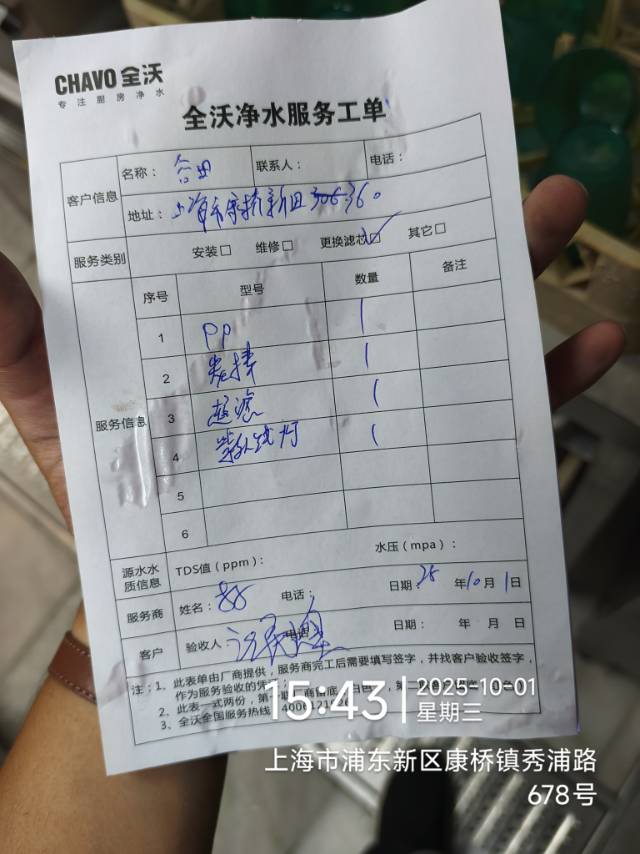 CHAVO 全沃
专注厨房净水
全沃净水服务工单
客户信息
名称： 合田 联系人： 电话：
地址： 上海市康桥新田 360
服务类别 安装□ 维修□ 更换滤芯☑ 其它□
服务信息
序号 型号 数量 备注
1 PP 1
2 炭棒 1
3 超滤 1
4 紫外线灯 1
5
6
源水水质信息 TDS值（ppm）： 水压（mpa）：
服务商 姓名： 电话： 日期： 25 年 10 月 1 日
客户 验收人： 电话： 日期： 年 月 日
注：1、此表单由厂商提供，服务商完工后需要填写签字，并找客户验收签字，
作为服务验收的凭
2、此表一式两份，第一联 商留底
3、全沃全国服务热线
15:43 2025-10-01
星期三
上海市浦东新区康桥镇秀浦路
678号